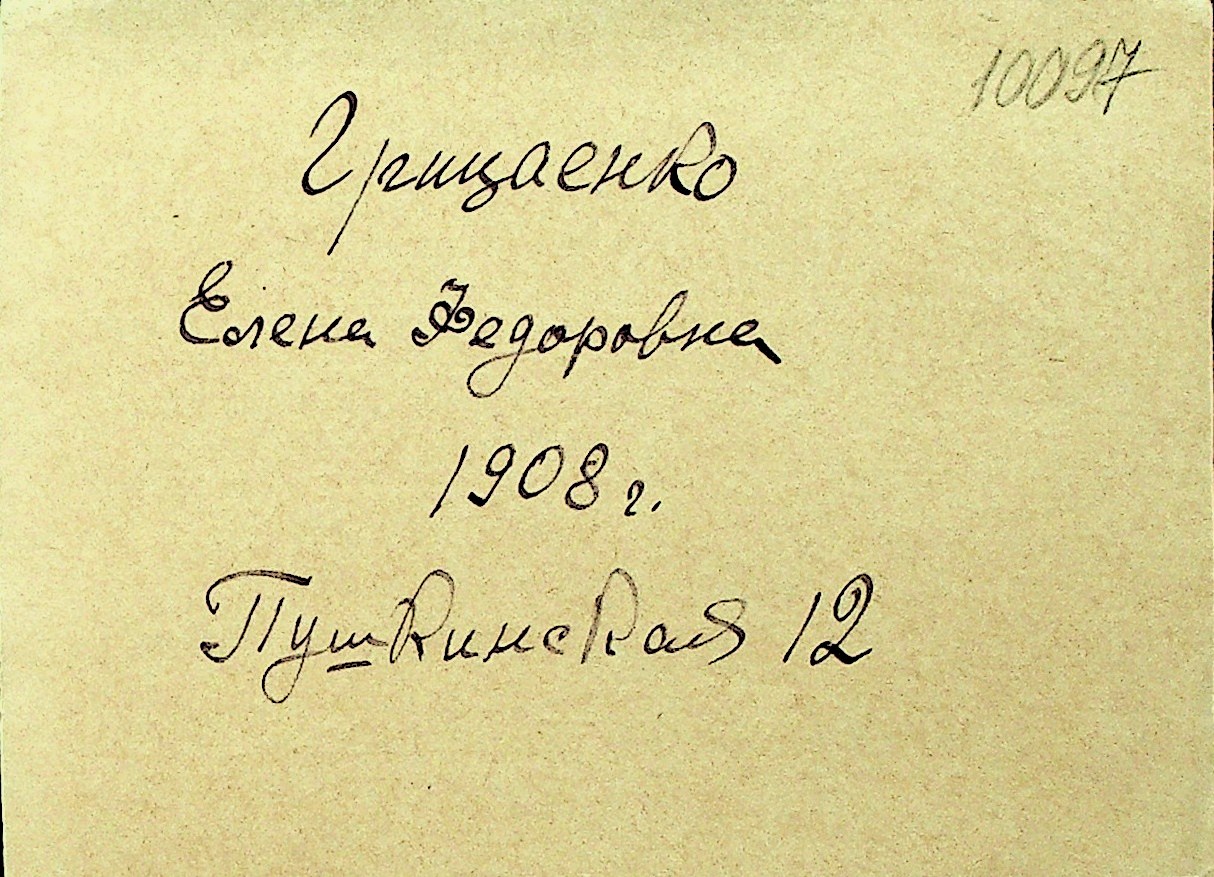 10097
Грицаенко
Елена Федоровна
1908 г.
Пушкинская 12